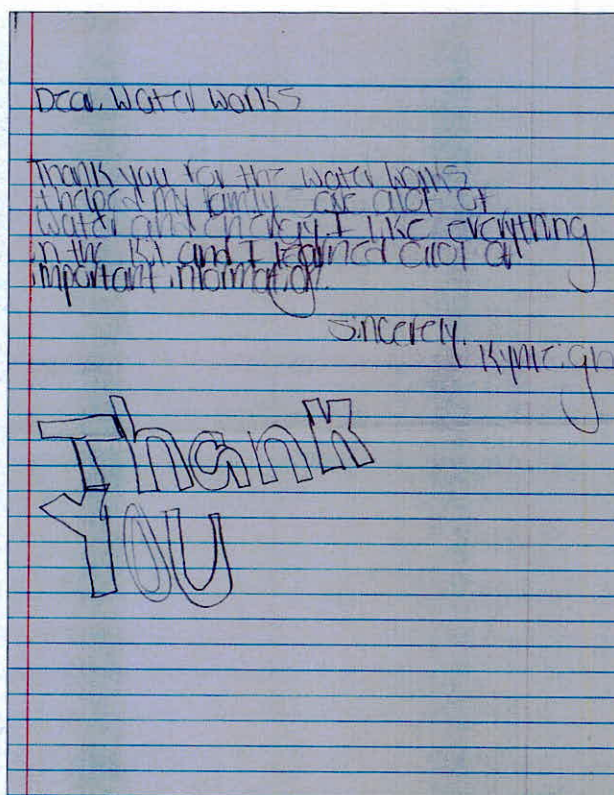 Dear. Water Works
Thank you for the water works
thelped my family save alot of
water and energy. I like everything
in the Kit and I learned alot of
important information.
Sincerely,
Kymleigh
Thank
You